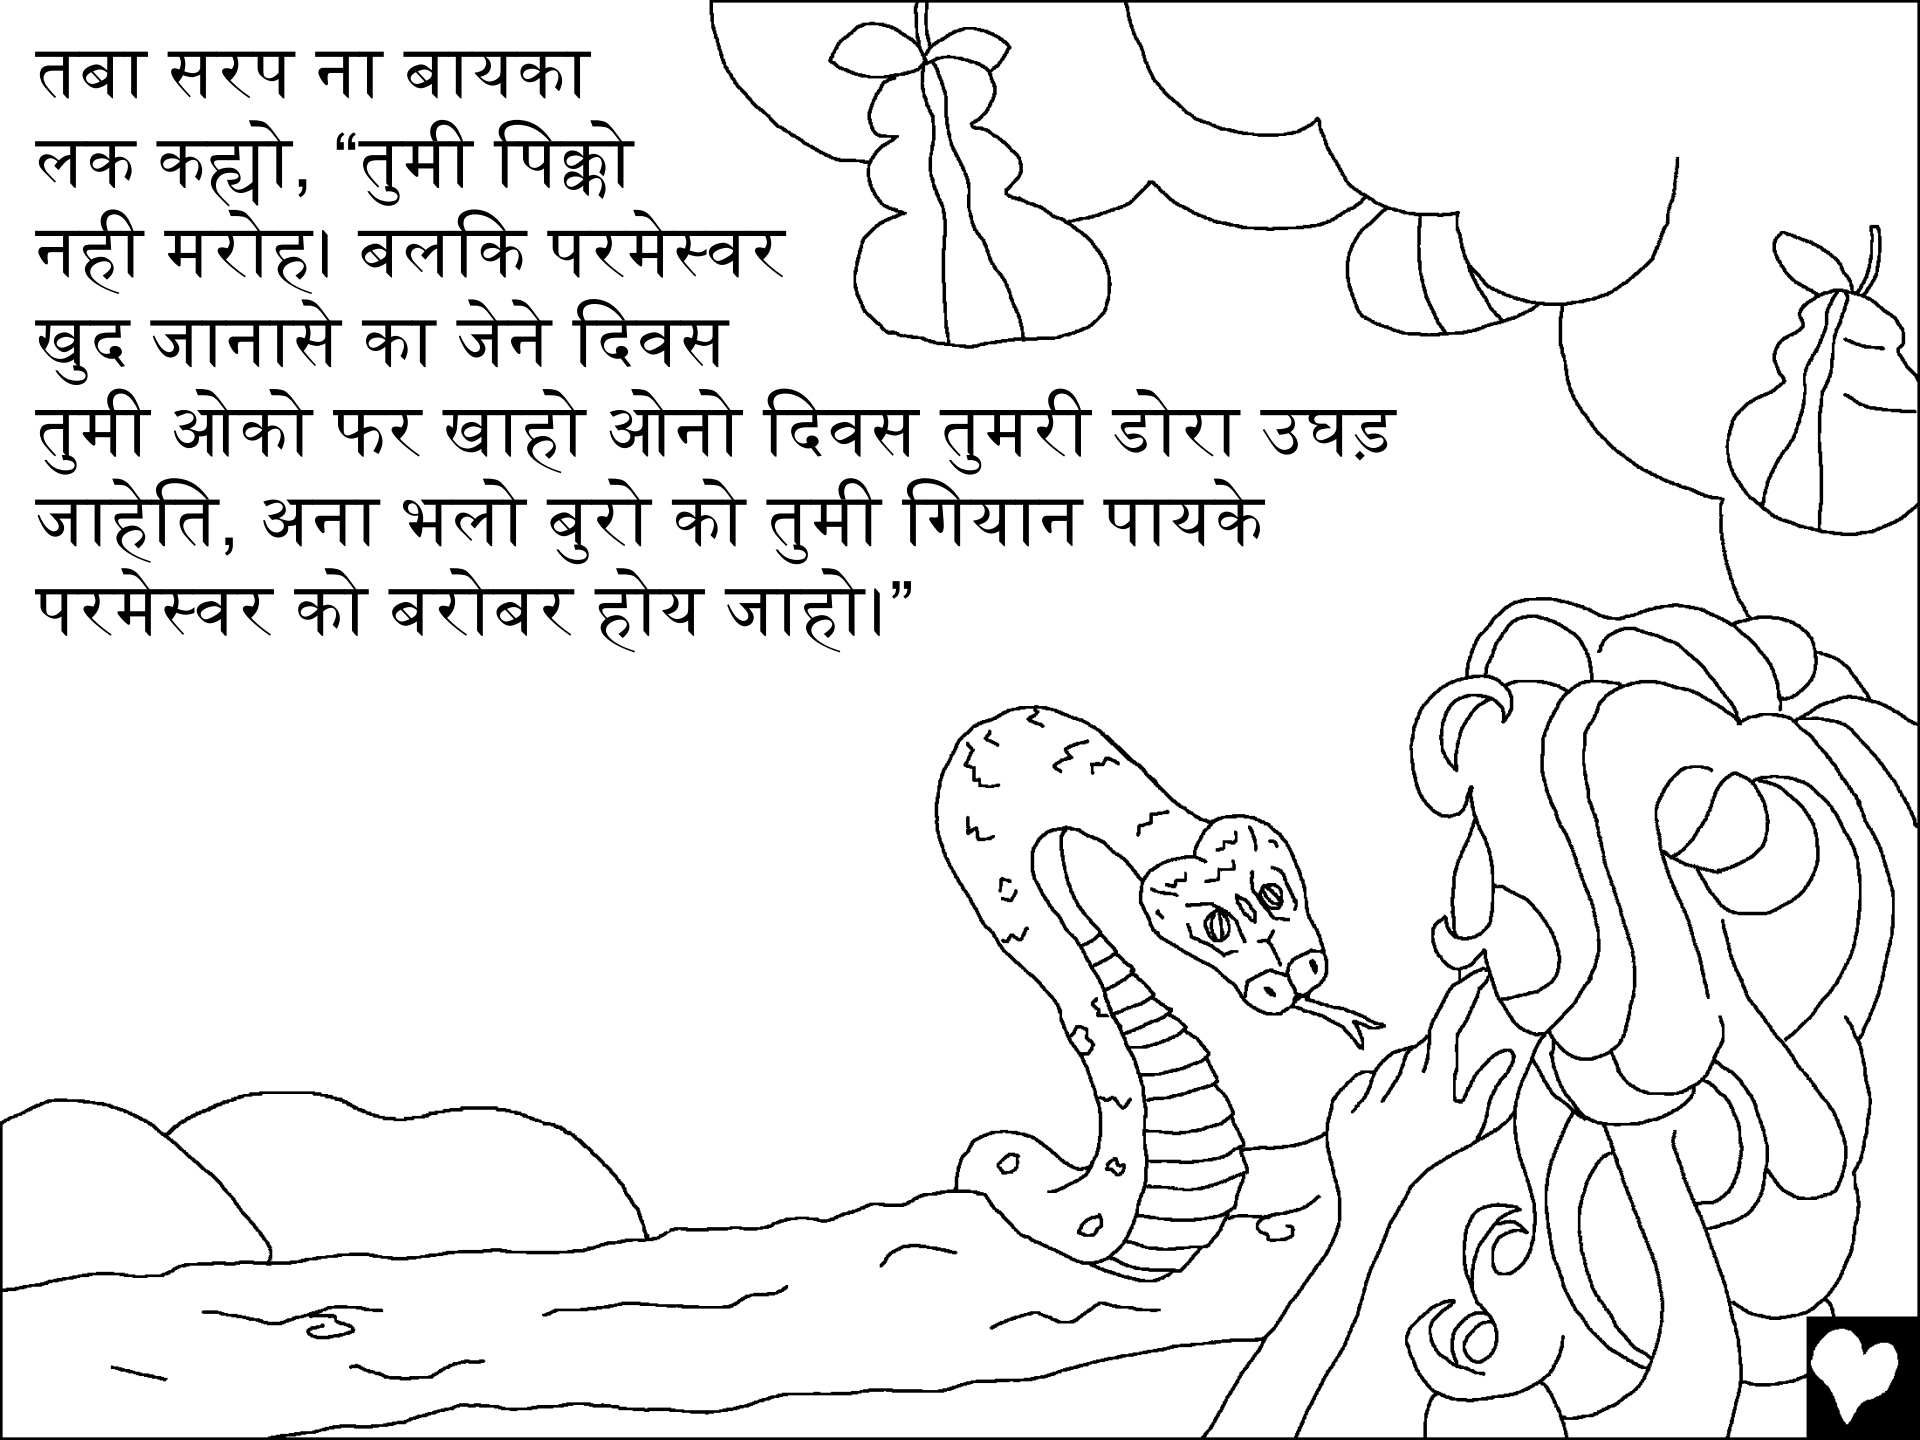 तबा सरप ना बायका
लक कह्यो, “तुमी पिक्को
नही मरोह। बलकि परमेस्वर
खुद जानासे का जेने दिवस
तुमी ओको फर खाहो ओनो दिवस तुमरी डोरा उघड़
जाहेति, अना भलो बुरो को तुमी गियान पायके
परमेस्वर को बरोबर होय जाहो।”